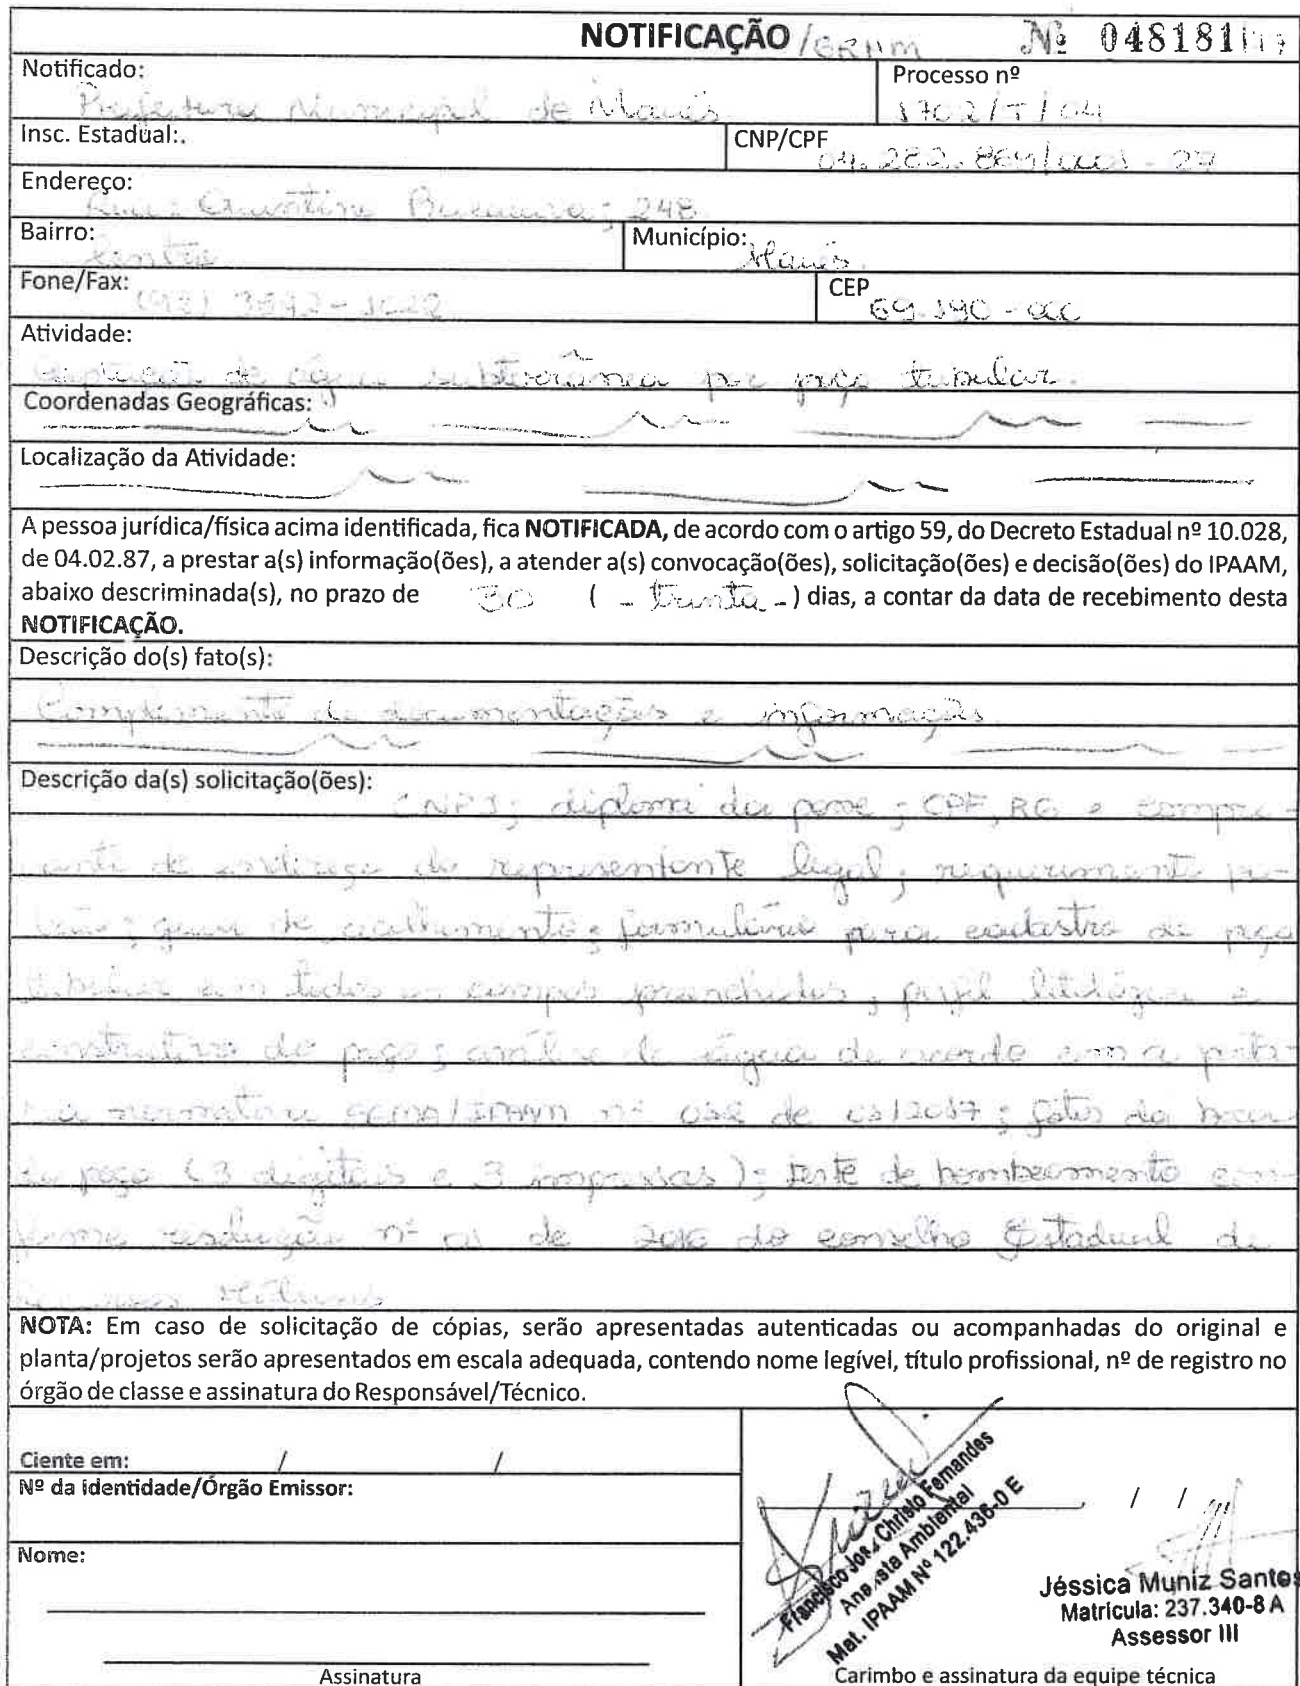 NOTIFICAÇÃO /GRHM Nº 048181/17
Notificado: Processo nº
Prefeitura Municipal de Maués 1702/T/04
Insc. Estadual:. CNP/CPF 04.282.869/0001-27
Endereço:
Rua: Quintino Bocaiuva; 248
Bairro: Município:
Centro Maués
Fone/Fax: (92) 3542-1022 CEP 69.190-000
Atividade:
captação de água subterrânea por poço tubular.
Coordenadas Geográficas:
Localização da Atividade:
A pessoa jurídica/física acima identificada, fica NOTIFICADA, de acordo com o artigo 59, do Decreto Estadual nº 10.028,
de 04.02.87, a prestar a(s) informação(ões), a atender a(s) convocação(ões), solicitação(ões) e decisão(ões) do IPAAM,
abaixo descriminada(s), no prazo de 30 ( - trinta - ) dias, a contar da data de recebimento desta
NOTIFICAÇÃO.
Descrição do(s) fato(s):
Complemento de documentação e informação
Descrição da(s) solicitação(ões):
CNPJ; diploma da posse; CPF, RG e compro-
vante de endereço do representante legal; requerimento pa-
drão; de recolhimento; formulário para cadastro de poço
tubular com todos os campos preenchidos; perfil litológico e
construtivo do poço; análise de água de acordo com a porta-
ria normativa SEMA/IPAAM nº de 2017; fotos da boca
do poço (3 digitais e 3 impressas); teste de bombeamento con-
forme resolução nº 01 de 2016 do conselho Estadual de
Recursos Hídricos
NOTA: Em caso de solicitação de cópias, serão apresentadas autenticadas ou acompanhadas do original e
planta/projetos serão apresentados em escala adequada, contendo nome legível, título profissional, nº de registro no
órgão de classe e assinatura do Responsável/Técnico.
Ciente em: / /
Nº da Identidade/Órgão Emissor:
Nome:
Assinatura
, / /
Francisco José Christo Fernandes
Analista Ambiental
Mat. IPAAM Nº 122.436-0 E
Jéssica Muniz Santos
Matrícula: 237.340-8 A
Assessor III
Carimbo e assinatura da equipe técnica